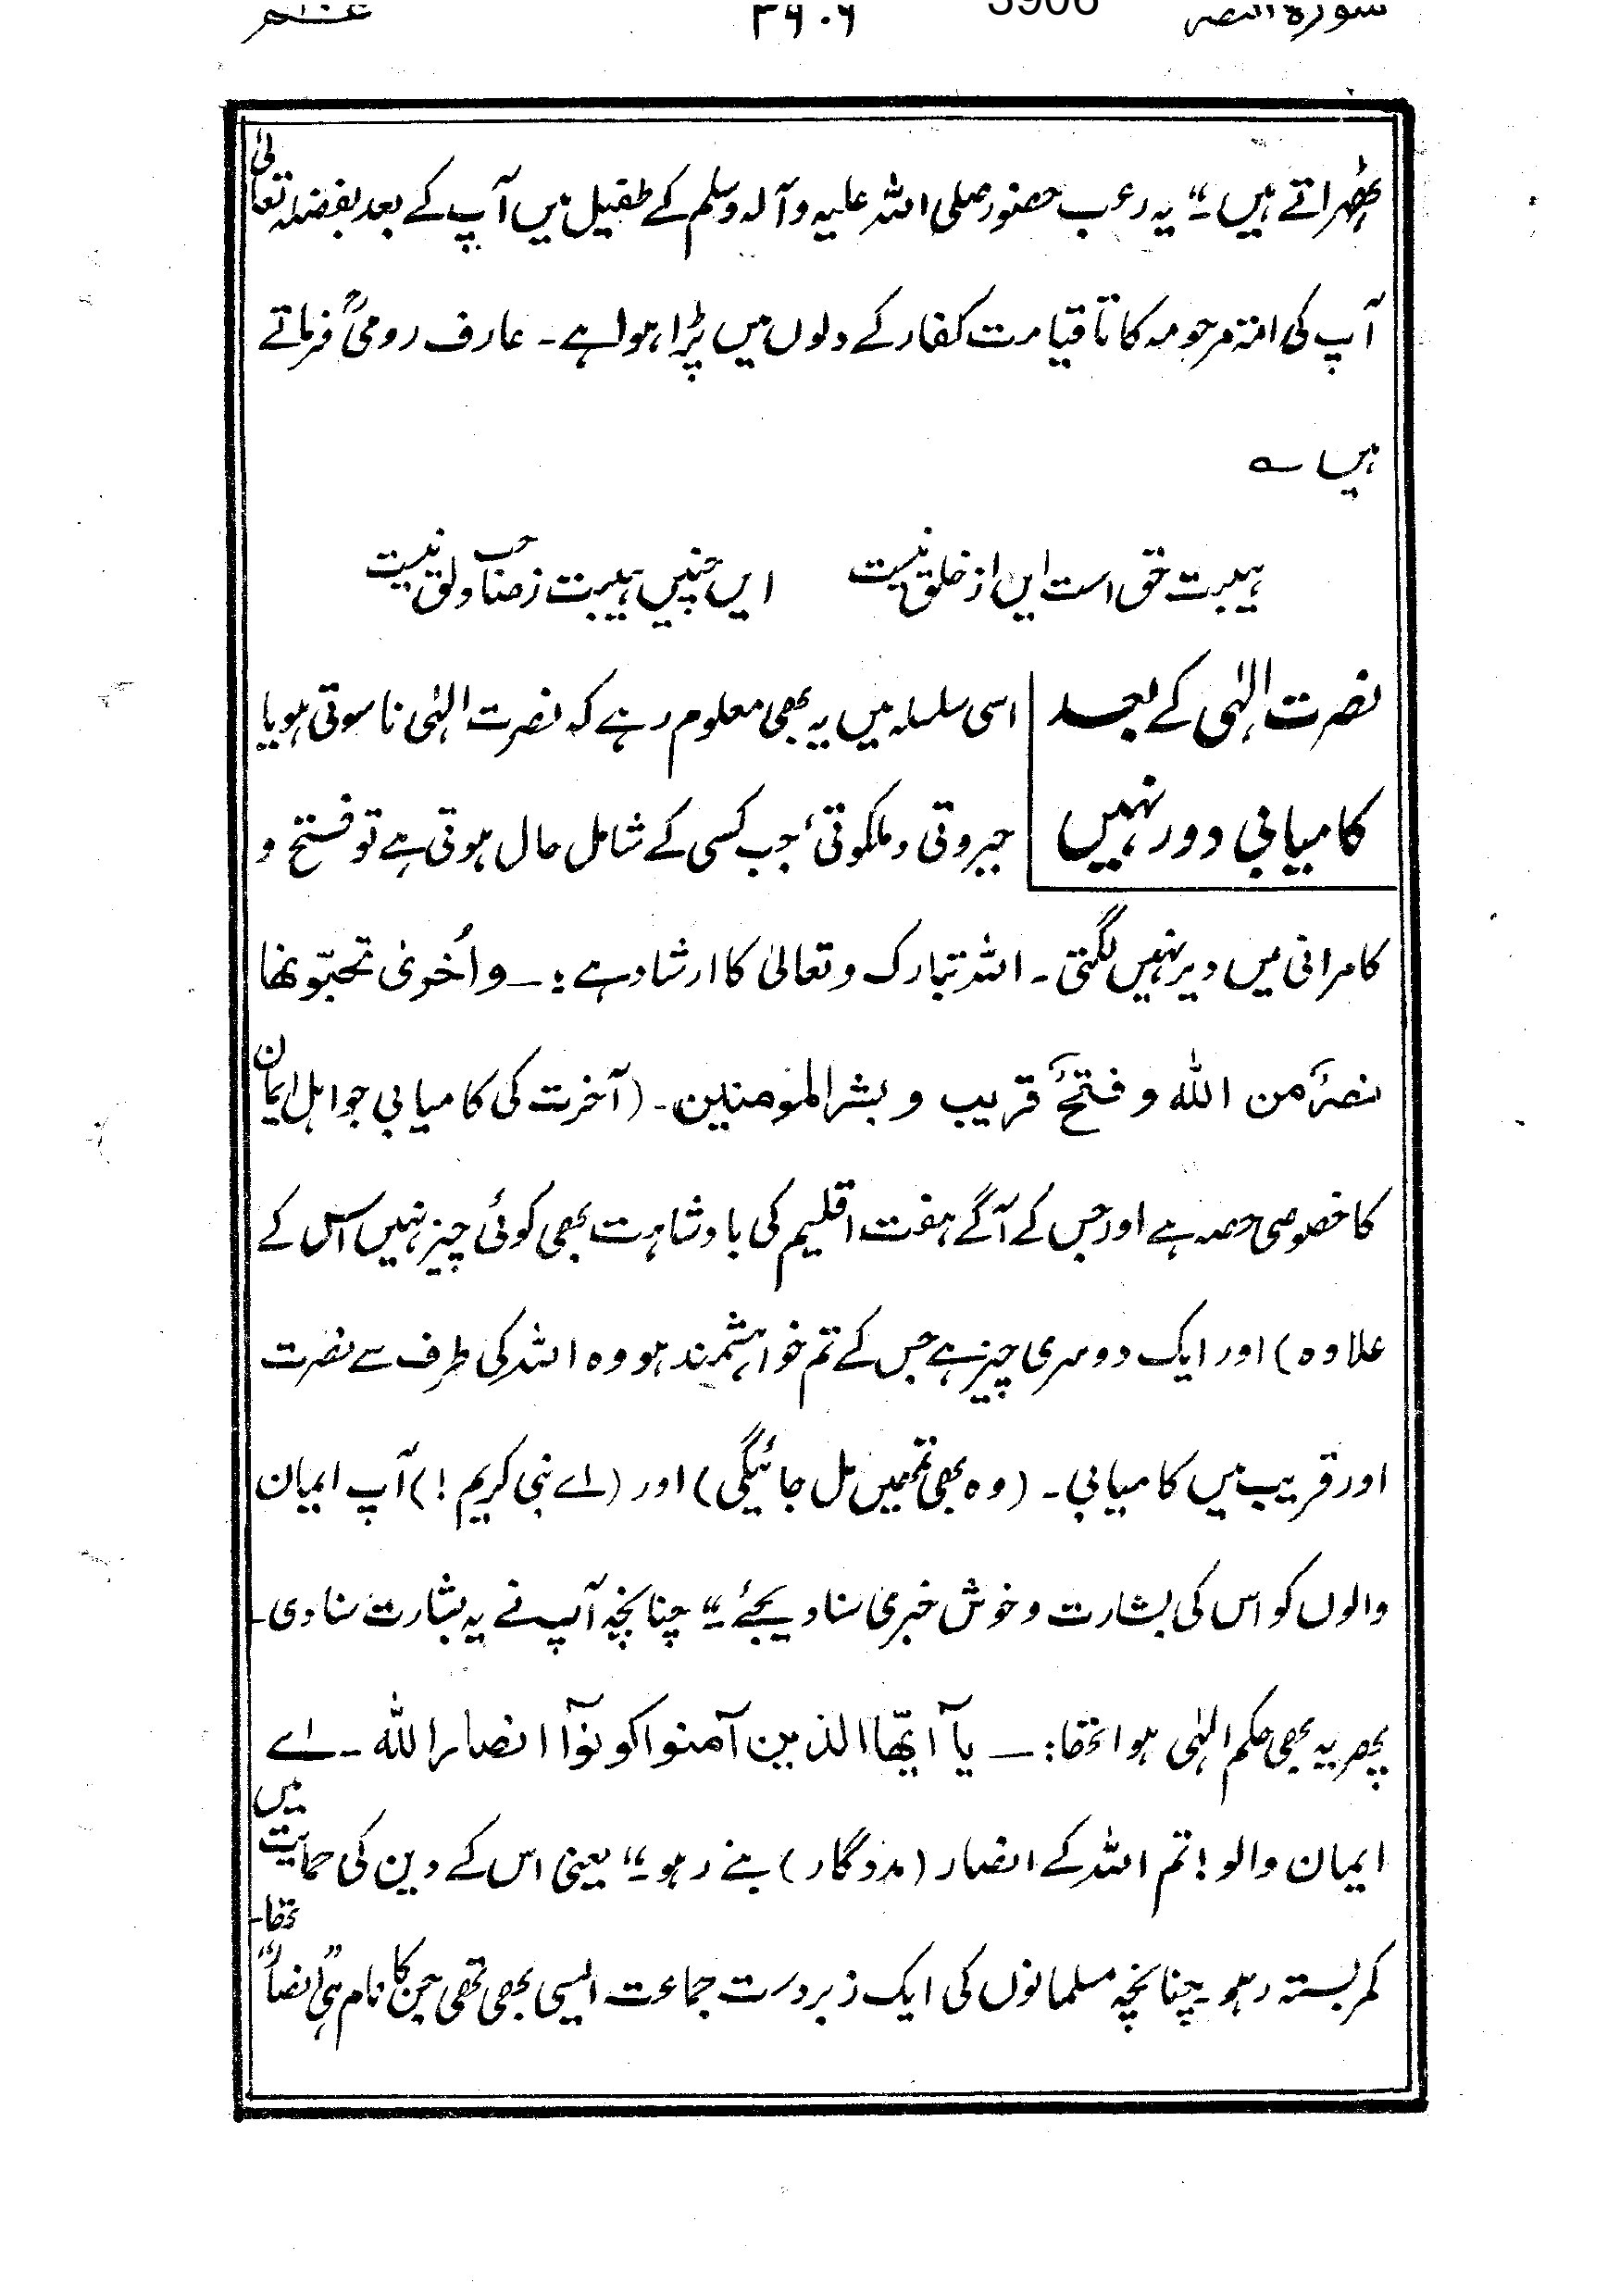 سورة النصر 3906 ۳۹۰۶ عم
ٹھہراتے ہیں۔" یہ رعب حضور صلی اللہ علیہ وآلہ وسلم کے طفیل میں آپ کے بعد بفضلہ تعالیٰ
آپ کی امۃ مرحومہ کا تا قیامت کفار کے دلوں میں پڑا ہوا ہے۔ عارف رومیؒ فرماتے
ہیں ؎
ہیبت حق است ایں از خلق نیست ایں چنیں ہیبت ز صاحب دلق نیست
نصرت الٰہی کے بعد اسی سلسلہ میں یہ بھی معلوم رہے کہ نصرت الٰہی ناسوتی ہو یا
کامیابی دور نہیں جبروتی و ملکوتی، جب کسی کے شامل حال ہوتی ہے تو فتح و
کامرانی میں دیر نہیں لگتی۔ اللہ تبارک و تعالیٰ کا ارشاد ہے :۔ واُخریٰ تحبّونها
نصرٌ من اللہ و فتحٌ قریب و بشر المؤمنین۔ (آخرت کی کامیابی جو اہل ایمان
کا خصوصی حصہ ہے اور جس کے آگے ہفت اقلیم کی بادشاہت بھی کوئی چیز نہیں اس کے
علاوہ) اور ایک دوسری چیز ہے جس کے تم خواہشمند ہو وہ اللہ کی طرف سے نصرت
اور قریب میں کامیابی۔ (وہ بھی تمہیں مل جائیگی) اور (اے نبی کریم!) آپ ایمان
والوں کو اس کی بشارت و خوش خبری سنا دیجئے۔" چنانچہ آپ نے یہ بشارت سنا دی۔
پھر یہ بھی حکم الٰہی ہوا تھا:۔ یآ ایّھا الذین آمنوا کونوآ انصار اللہ ۔ اے
ایمان والو! تم اللہ کے انصار (مددگار) بنے رہو۔" یعنی اس کے دین کی حمایت میں
کمر بستہ رہو۔ چنانچہ مسلمانوں کی ایک زبردست جماعت ایسی بھی تھی جن کا نام ہی "انصار" تھا۔